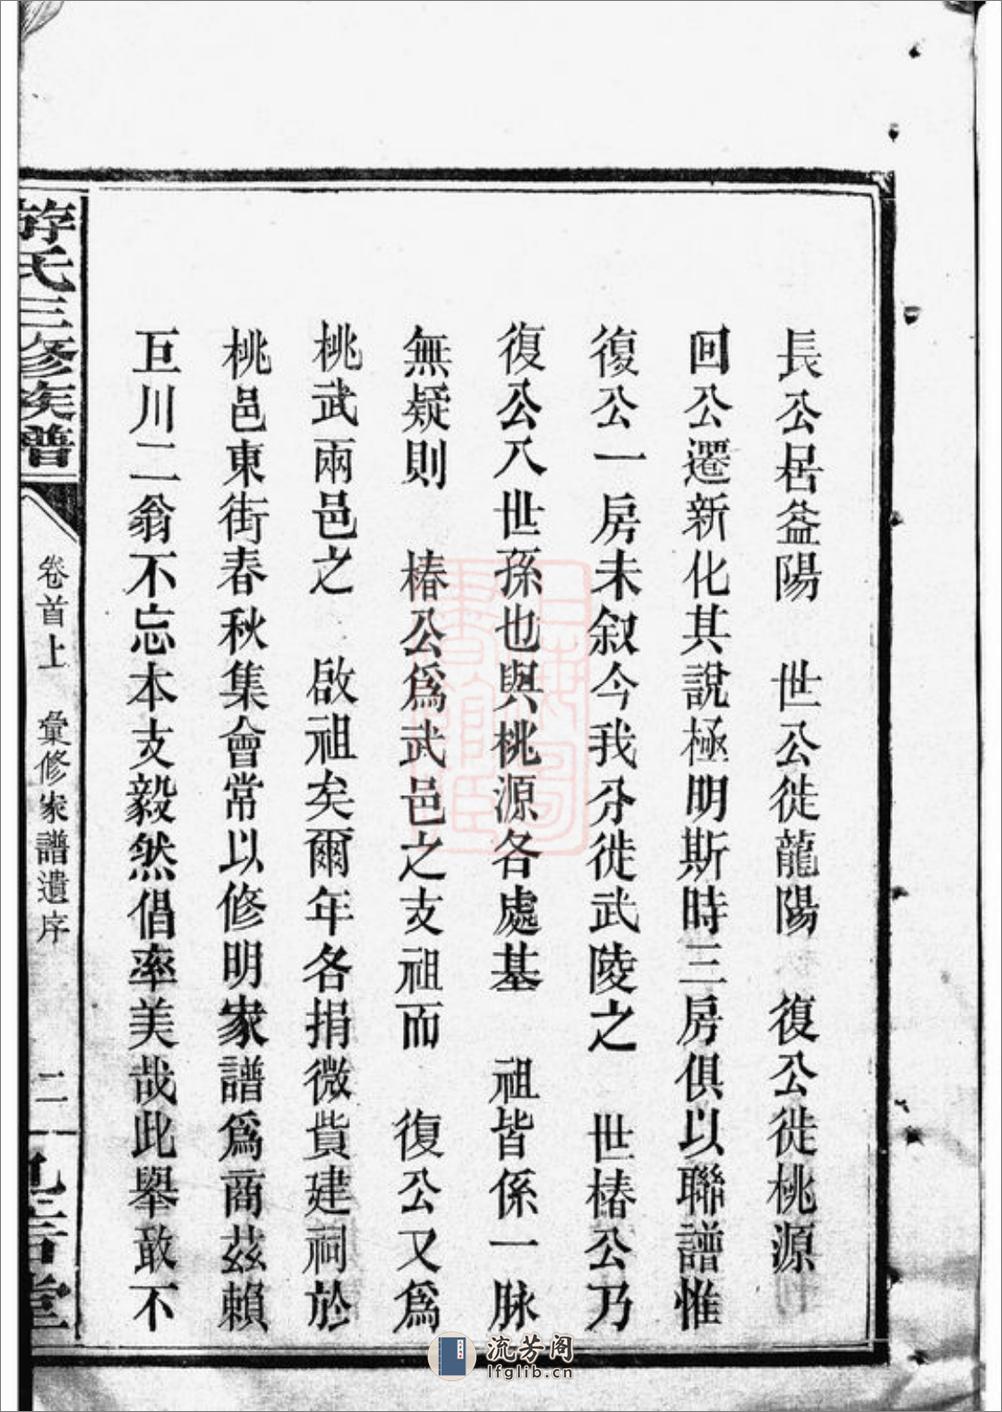 長公居益陽　世公徙龍陽　復公徙桃源
回公遷新化其說極明斯時三房俱以聯譜惟
復公一房未叙今我分徙武陵之　世椿公乃
復公八世孫也與桃源各處基　祖皆係一脉
無疑則　椿公爲武邑之支祖而　復公又爲
桃武兩邑之　啟祖矣爾年各捐微貲建祠於
桃邑東街春秋集會常以修明家譜爲商茲賴
巨川二翁不忘本支毅然倡率美哉此舉敢不
氏三修族譜
卷首上　彙修家譜遺序
二
堂
流芳阁
lfglib.cn